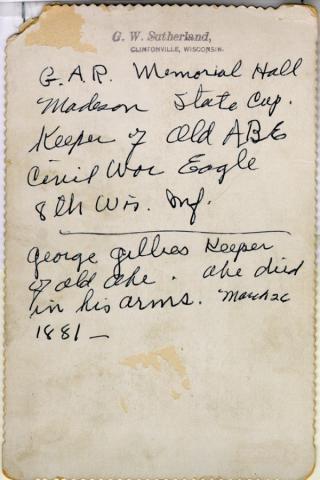 G. W. Sutherland,
CLINTONVILLE, WISCONSIN.
G.A.R. Memorial Hall
Madeson State Cap.
Keeper of Old ABE
Civil War Eagle
8th Wis. Inf.
George Gillies Keeper
of old Abe. Abe died
in his arms. March 26
1881 —